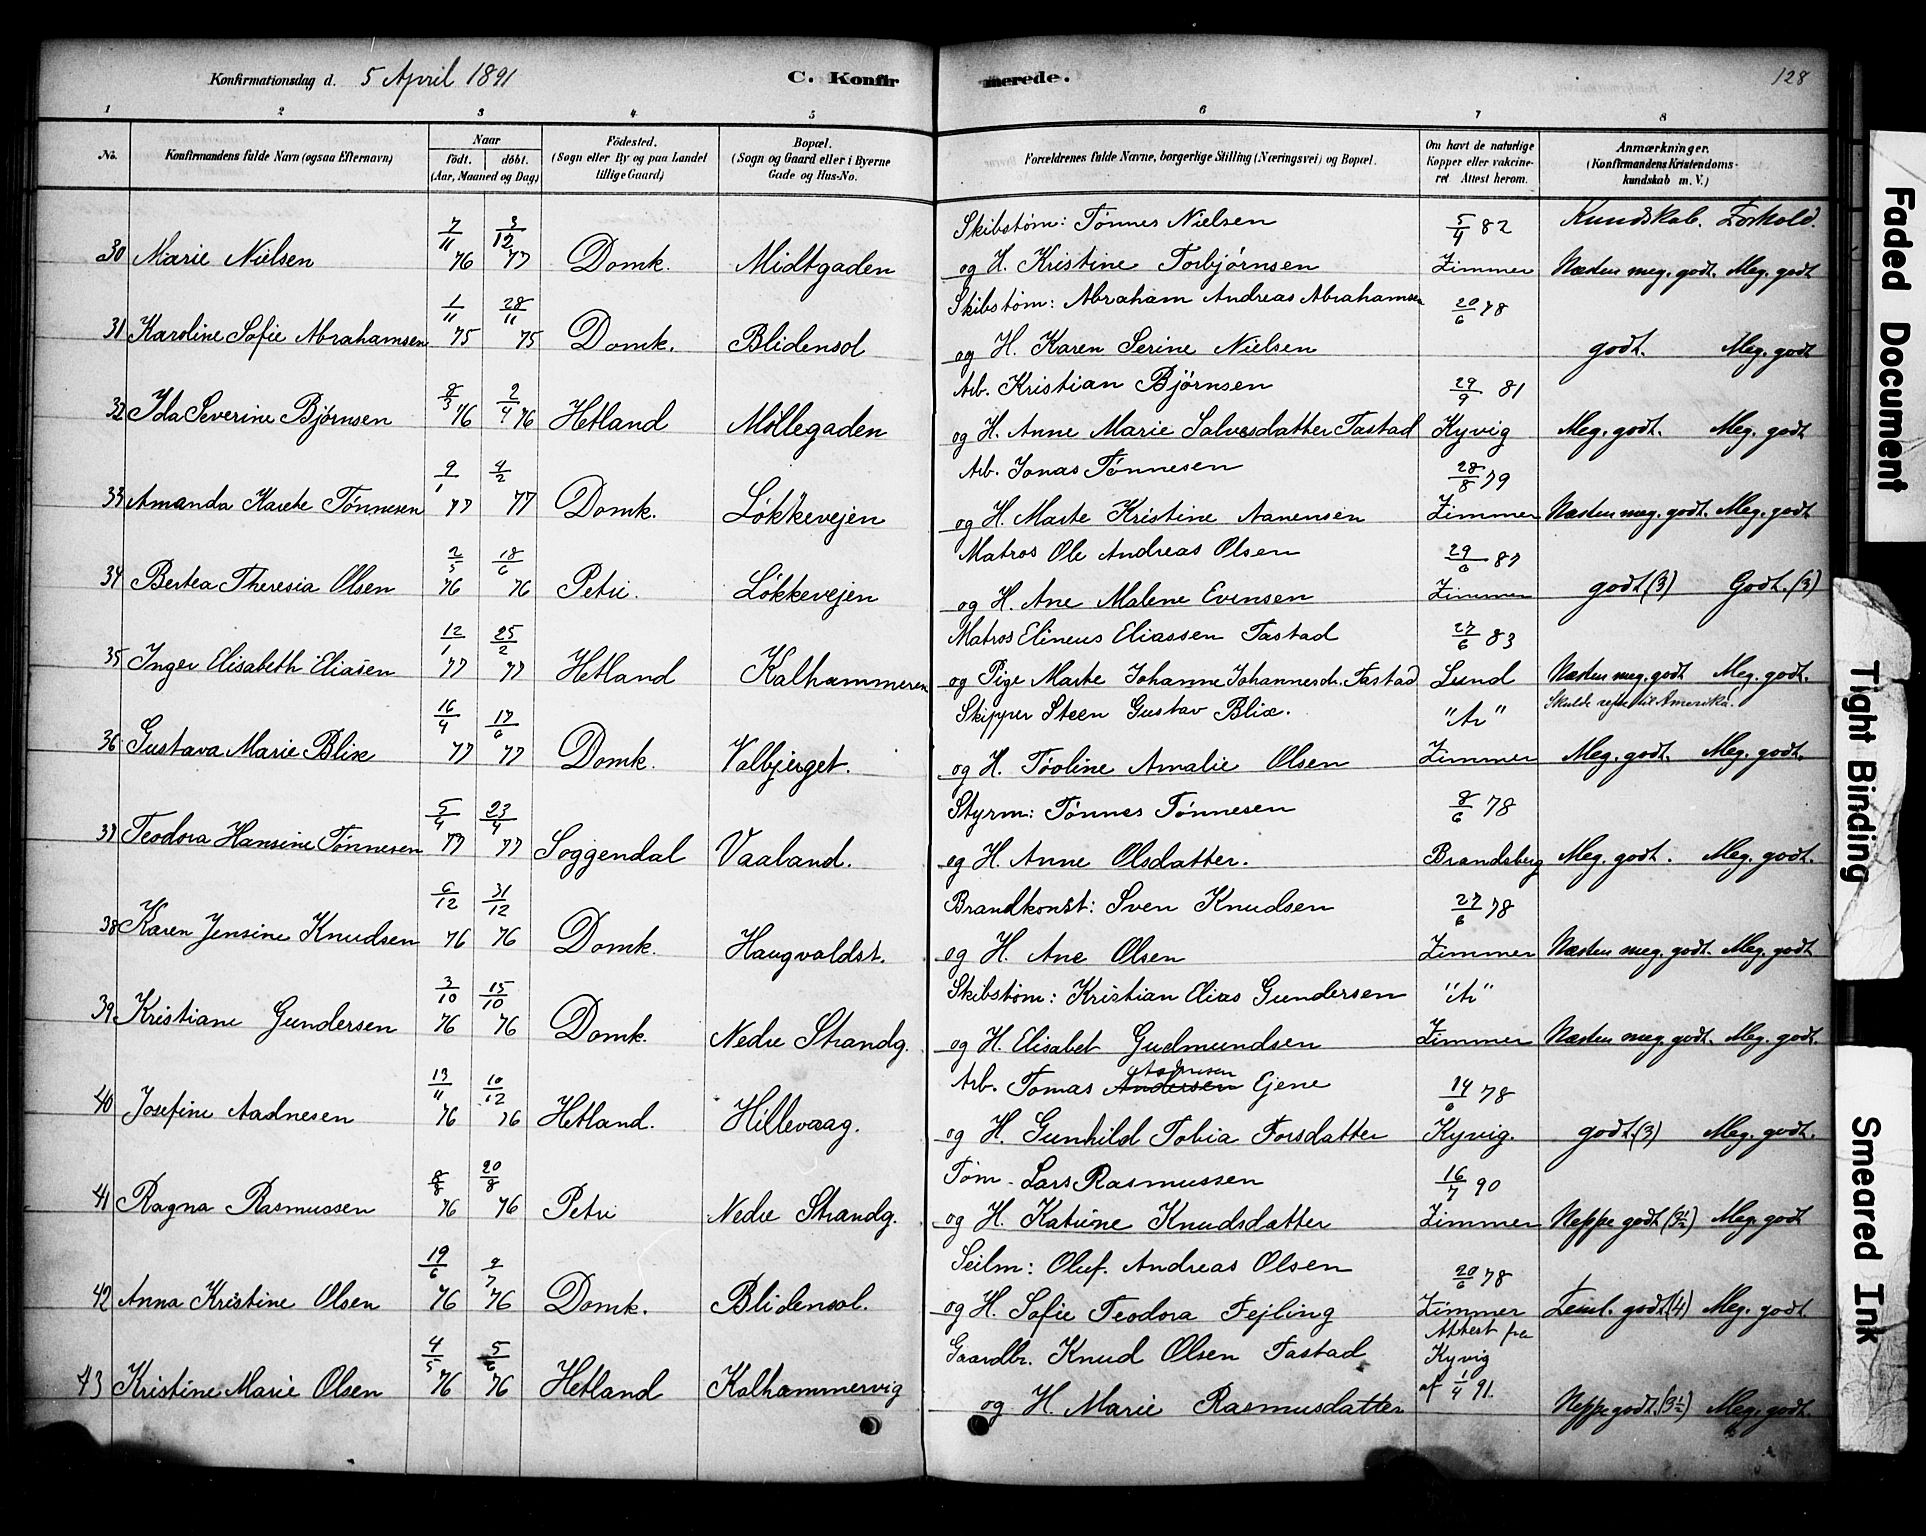 Konfirmationsdag d. 5 April 1891 C. Konfirmerede. 128
1 2 3 4 5 6 7 8
No. Konfirmandens fulde Navn (ogsaa Efternavn) Naar födt. döbt. (Aar, Maaned og Dag) Födested. (Sogn eller By og paa Landet tillige Gaard) Bopæl. (Sogn og Gaard eller i Byerne Gade og Hus-No. Forældrenes fulde Navne, borgerlige Stilling (Næringsvei) og Bopæl. Om havt de naturlige Kopper eller vakcineret Attest herom. Anmærkninger. (Konfirmandens Kristendomskundskab m. V.)
Kundskab. Forhold.
7/11 3/12 Skibstøm: Tønnes Nielsen 5/4 82
30 Marie Nielsen 76 77 Domk. Midtgaden og H. Kristine Torbjørnsen Zimmer Næsten meg. godt. Meg. godt
1/11 28/11 Skibstøm: Abraham Andreas Abrahamsen 20/6 78
31 Karoline Sofie Abrahamsen 75 75 Domk. Blidensol og H. Karen Serine Nielsen godt. Meg. godt
8/3 2/4 Arb. Kristian Bjørnsen 29/9 81
32 Ida Severine Bjørnsen 76 76 Hetland Møllegaden og H. Anne Marie Salvesdatter Tastad Kyvig Meg. godt. Meg. godt
9/1 4/2 Arb. Jonas Tønnesen 28/8 79
33 Amanda Karete Tønnesen 77 77 Domk. Løkkevejen og H. Marte Kristine Aanensen Zimmer Næsten meg. godt. Meg. godt
2/5 18/6 Matros Ole Andreas Olsen 29/6 87
34 Bertea Theresia Olsen 76 76 Petri. Løkkevejen og H. Ane Malene Evensen Zimmer godt (3) Godt. (3)
12/1 25/2 Matros Elineus Eliassen Tastad 27/6 83
35 Inger Elisabeth Eliasen 77 77 Hetland Kalhammeren og Pige Marte Johanne Johannesdr. Tastad Lund Næsten meg. godt Meg. godt.
16/4 17/6 Skipper Steen Gustav Blix. "Ar" Skulde rejse til Amerika.
36 Gustava Marie Blix 77 77 Domk. Valbjerget. og H. Toline Amalie Olsen Zimmer Meg. godt. Meg. godt.
5/4 23/4 Styrm: Tønnes Tønnesen 8/6 78
37 Teodora Hansine Tønnesen 77 77 Soggendal Vaaland. og H. Anne Olsdatter. Brandsberg Meg. godt. Meg. godt.
6/12 31/12 Brandkonst: Sven Knudsen 27/6 78
38 Karen Jensine Knudsen 76 76 Domk. Haugvaldst. og H. Ane Olsen Zimmer Næsten meg. godt. Meg. godt
3/10 15/10 Skibstøm: Kristian Elias Gundersen "Ar"
39 Kristiane Gundersen 76 76 Domk. Nedre Strandg. og H. Elisabet Gudmundsen Zimmer Næsten meg. godt. Meg. godt.
13/11 10/12 Arb. Tomas Andersen Aadnesen Gjene 14/6 78
40 Josefine Aadnesen 76 76 Hetland. Hillevaag. og H. Gunhild Tobia Torsdatter Kyvig. godt. (3) Meg. godt.
8/8 20/8 Tøm. Lars Rasmussen 16/7 90
41 Ragna Rasmussen 76 76 Petri Nedre Strandg. og H. Katrine Knudsdatter Zimmer Neppe godt (3½) Meg. godt
19/6 9/7 Seilm: Oluf Andreas Olsen 20/6 78
42 Anna Kristine Olsen 76 76 Domk. Blidensol. og H. Sofie Teodora Fejling Zimmer Teml. godt (4) Meg. godt.
4/5 5/6 Gaardbr. Knud Olsen Tastad Attest fra Kyvig
43 Kristine Marie Olsen 76 76 Hetland Kalhammervig og H. Marie Rasmusdatter af 1/4 91. Neppe godt. (3½) Meg. godt.
Faded Document
Tight Binding
Smeared Ink